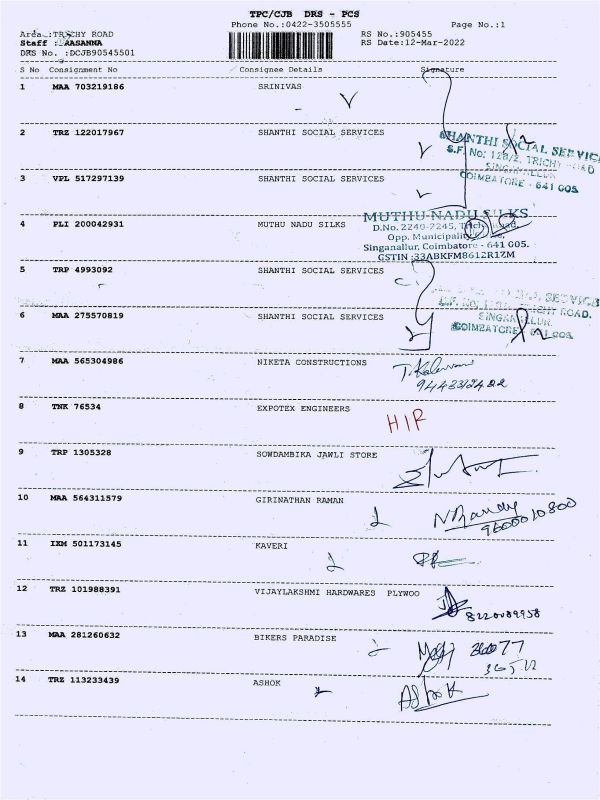 TPC/CJB DRS - PCS
Phone No.:0422-3505555 Page No.:1
Area :TRICHY ROAD RS No.:905455
Staff : AASANNA RS Date:12-Mar-2022
DRS No. :DCJB90545501
S No Consignment No Consignee Details Signature
1 MAA 703219186 SRINIVAS
2 TRZ 122017967 SHANTHI SOCIAL SERVICES
SHANTHI SOCIAL SERVICE
S.F. No: 128/2, TRICHY ROAD
SINGANALLUR
COIMBATORE - 641 005
3 VPL 517297139 SHANTHI SOCIAL SERVICES
4 PLI 200042931 MUTHU NADU SILKS
MUTHU NADU SILKS
D.No. 2240-7245, Trichy Road,
Opp. Municipality
Singanallur, Coimbatore - 641 005.
GSTIN :33ABKFM8612R1ZM
5 TRP 4993092 SHANTHI SOCIAL SERVICES
6 MAA 275570819 SHANTHI SOCIAL SERVICES
TRICHY ROAD.
SINGANALLUR
COIMBATORE 641 005
7 MAA 565304986 NIKETA CONSTRUCTIONS
8 TNK 76534 EXPOTEX ENGINEERS HIR
9 TRP 1305328 SOWDAMBIKA JAWLI STORE
10 MAA 564311579 GIRINATHAN RAMAN
9600010800
11 IXM 501173145 KAVERI
12 TRZ 101988391 VIJAYLAKSHMI HARDWARES PLYWOO
13 MAA 281260632 BIKERS PARADISE
14 TRZ 113233439 ASHOK Ashok